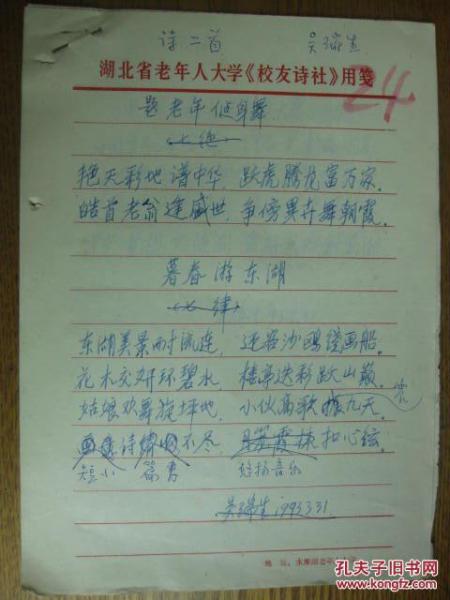 诗二首 吴瑞生
湖北省老年人大学《校友诗社》用笺
24
题老年健身舞
(七绝)
艳天彩地谱中华，跃虎腾龙富万家。
皓首老翁逢盛世，争傍异卉舞朝霞。
暮春游东湖
(七律)
东湖美景时流连，还答沙鸥绕画船。
花木交妍环碧水，楼亭迭彩跃山巅。
姑娘欢舞旋坪地，小伙高歌振九天。
震
诗 不尽， 扣心弦。
短小篇章 好扬音乐
吴瑞生 1993.3.31
地址：水果湖老年
孔夫子旧书网
KONGFZ.COM